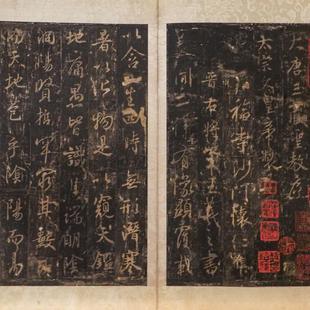 大唐三藏聖教序
太宗文皇帝製
弘福寺沙門懷仁集
晉右將軍王羲之書
蓋聞二儀有像顯覆載
以含生四時無形潛寒
暑以化物是以窺天鑑
地庸愚皆識其端明陰
洞陽賢哲罕窮其數然
而天地苞乎陰陽而易